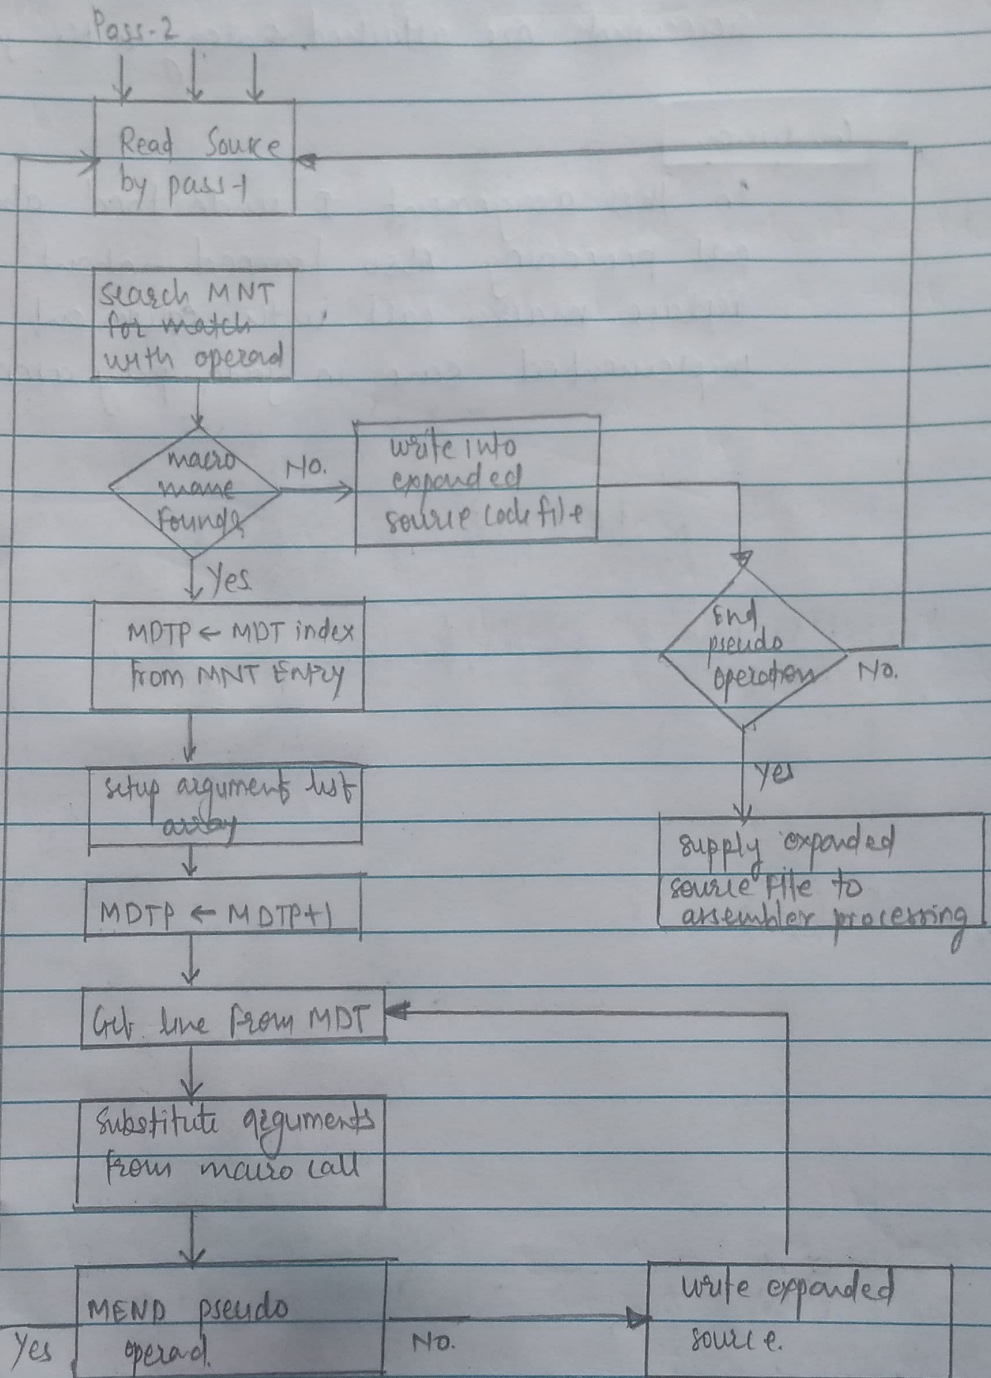 Pass-2
Read Source
by pass-1
search MNT
for match
with operad
macro
name
found?
No.
write into
expanded
source code file
Yes
MDTP ← MDT index
from MNT Entry
End
pseudo
operation
No.
Yes
setup argument list
array
supply expanded
source file to
assembler processing
MDTP ← MDTP+1
Get line from MDT
Substitute arguments
from macro call
MEND pseudo
operad.
Yes
No.
write expanded
source.